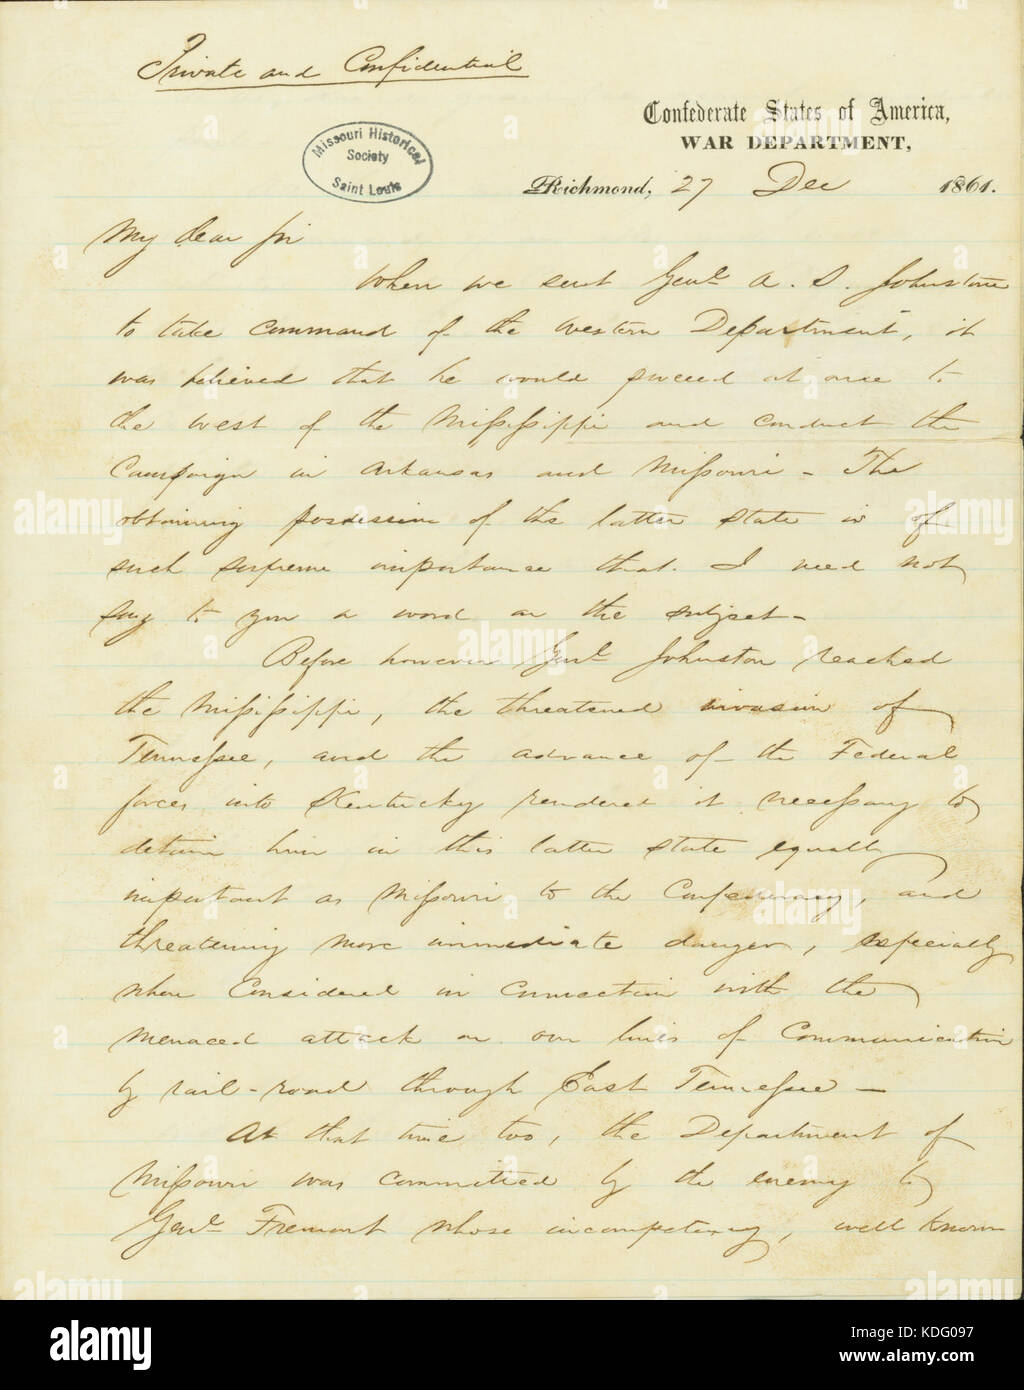 Private and Confidential
Confederate States of America,
WAR DEPARTMENT,
Missouri Historical
Society
Saint Louis
Richmond, 27 Dec 1861.
My dear Sir
When we sent Genl. A. S. Johnston
to take command of the Western Department, it
was believed that he would proceed at once to
the west of the Mississippi and conduct the
Campaign in Arkansas and Missouri - The
obtaining possession of the latter state is of
such supreme importance that I need not
say to you a word on the subject -
Before however Genl. Johnston reached
the Mississippi, the threatened invasion of
Tennessee, and the advance of the Federal
forces into Kentucky rendered it necessary to
detain him in this latter state equally
important as Missouri to the Confederacy, and
threatening more immediate danger, especially
when Considered in Connection with the
menaced attack on our lines of Communication
by rail-road through East Tennessee -
At that time too, the Department of
Missouri was committed by the enemy to
Genl. Fremont whose incompetency, well known
alamy
a
Image ID: KDG097
www.alamy.com